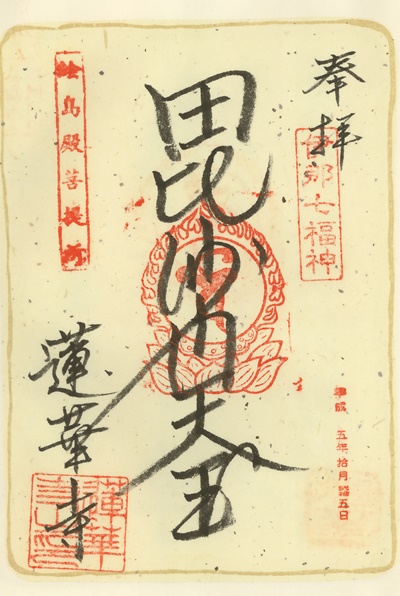 奉拝
伊那七福神
毘沙門天王
絵島殿菩提所
蓮華寺
平成 五年拾月 五日
蓮華